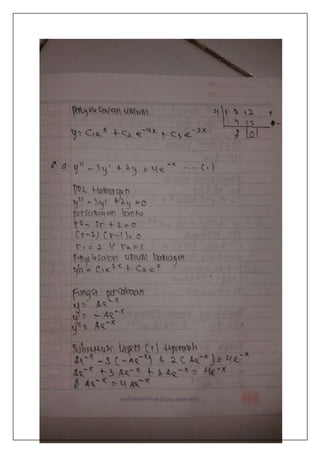 Penyelesaian umum
y = C₁eˣ + C₂ e⁻⁴ˣ + C₃ e⁻³ˣ
a. y'' - 3y' + 2y = 4e⁻ˣ ... (1)
PDL Homogen
y'' - 3y' + 2y = 0
persamaan bantu
r² - 3r + 2 = 0
(r-2) (r-1) = 0
r₁ = 2 V r₂ = 1
Penyelesaian umum homogen
yh = C₁e²ˣ + C₂eˣ
Fungsi percobaan
y = Ae⁻ˣ
y' = -Ae⁻ˣ
y'' = Ae⁻ˣ
Substitusi (1) diperoleh
Ae⁻ˣ - 3(-Ae⁻ˣ) + 2(Ae⁻ˣ) = 4e⁻ˣ
Ae⁻ˣ + 3Ae⁻ˣ + 2Ae⁻ˣ = 4e⁻ˣ
6 Ae⁻ˣ = 4 Ae⁻ˣ